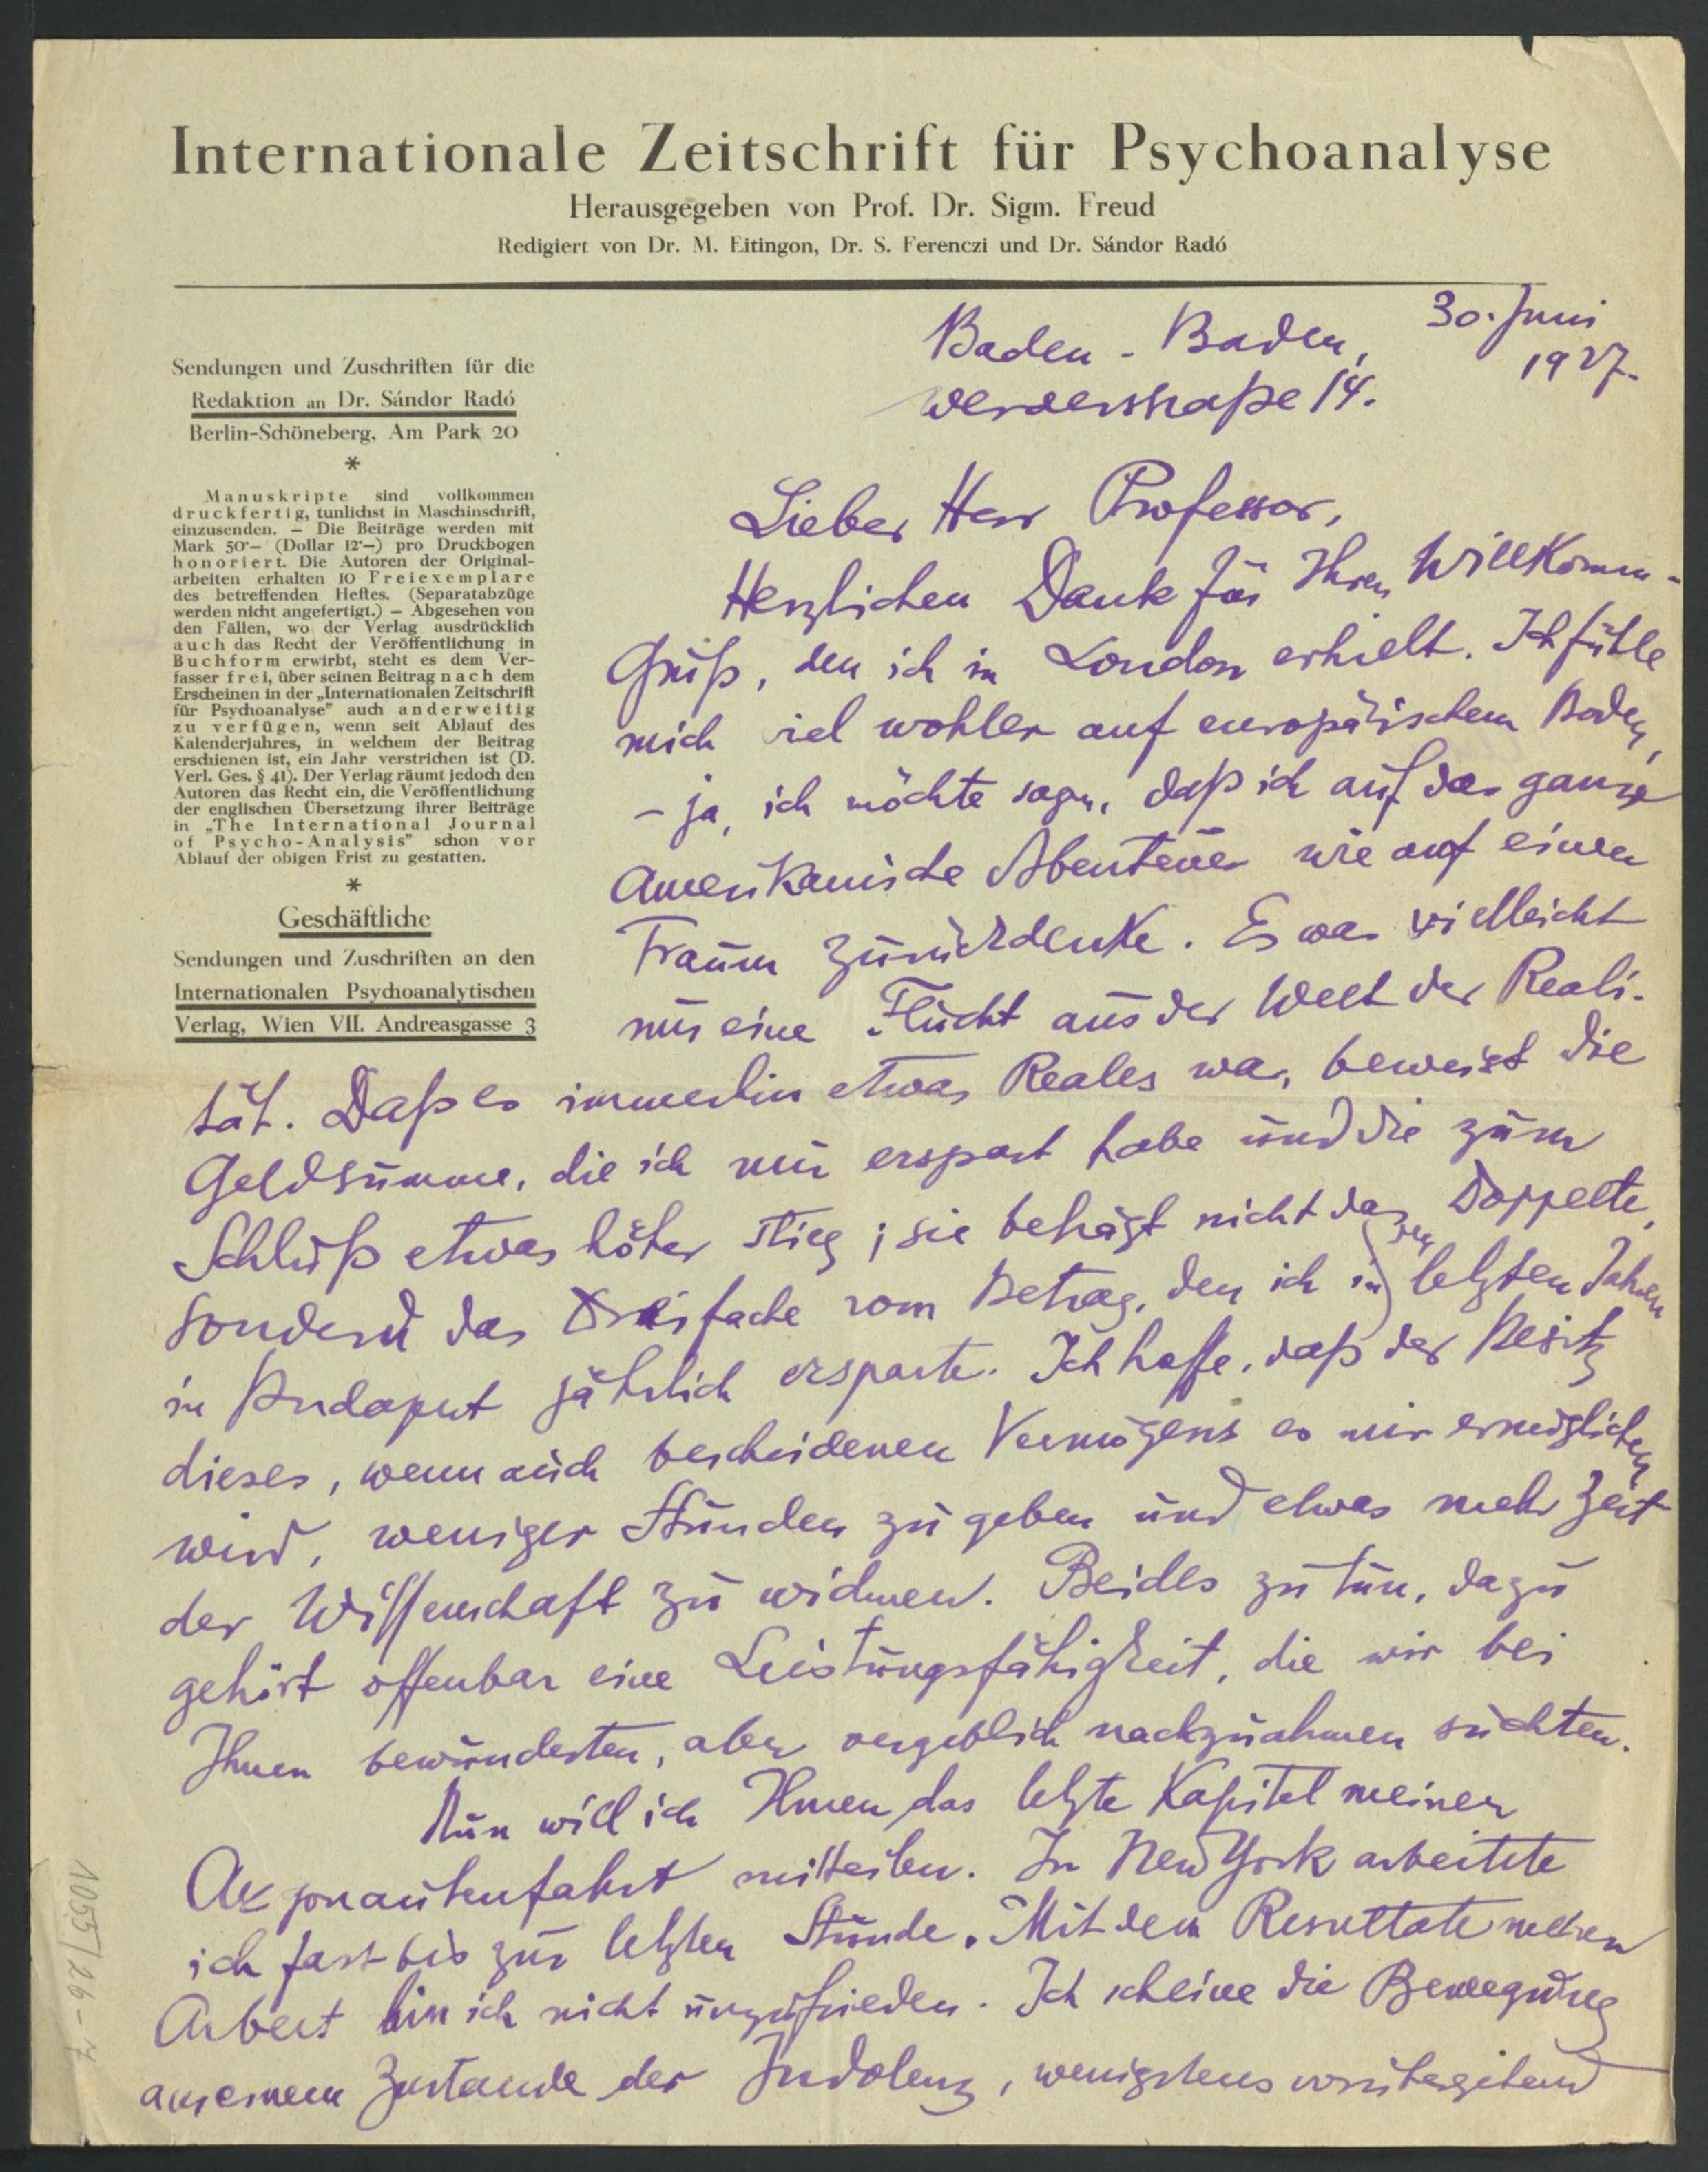 Internationale Zeitschrift für Psychoanalyse
Herausgegeben von Prof. Dr. Sigm. Freud
Redigiert von Dr. M. Eitingon, Dr. S. Ferenczi und Dr. Sándor Radó
Sendungen und Zuschriften für die
Redaktion an Dr. Sándor Radó
Berlin-Schöneberg, Am Park 20
*
Manuskripte sind vollkommen
druckfertig, tunlichst in Maschinschrift,
einzusenden. — Die Beiträge werden mit
Mark 50·— (Dollar 12·—) pro Druckbogen
honoriert. Die Autoren der Original-
arbeiten erhalten 10 Freiexemplare
des betreffenden Heftes. (Separatabzüge
werden nicht angefertigt.) — Abgesehen von
den Fällen, wo der Verlag ausdrücklich
auch das Recht der Veröffentlichung in
Buchform erwirbt, steht es dem Ver-
fasser frei, über seinen Beitrag nach dem
Erscheinen in der „Internationalen Zeitschrift
für Psychoanalyse” auch anderweitig
zu verfügen, wenn seit Ablauf des
Kalenderjahres, in welchem der Beitrag
erschienen ist, ein Jahr verstrichen ist (D.
Verl. Ges. § 41). Der Verlag räumt jedoch den
Autoren das Recht ein, die Veröffentlichung
der englischen Übersetzung ihrer Beiträge
in „The International Journal
of Psycho-Analysis” schon vor
Ablauf der obigen Frist zu gestatten.
*
Geschäftliche
Sendungen und Zuschriften an den
Internationalen Psychoanalytischen
Verlag, Wien VII. Andreasgasse 3
Baden-Baden, 30. Juni
1927.
Werderstraße 14.
Lieber Herr Professor,
Herzlichen Dank für Ihren Willkomm-
Gruß, den ich in London erhielt. Ich fühle
mich viel wohler auf europäischem Boden,
– ja, ich möchte sagen, daß ich auf das ganze
amerikanische Abenteuer wie auf einen
Traum zurückdenke. Es war vielleicht
nur eine Flucht aus der Welt der Reali-
tät. Daß es immerhin etwas Reales war, beweist die
Geldsumme, die ich mir erspart habe und die zum
Schluß etwas höher stieg; sie beträgt nicht das Doppelte,
sondern das Dreifache vom Betrag, den ich in den letzten Jahren
in Budapest jährlich ersparte. Ich hoffe, daß der Besitz
dieses, wenn auch bescheidenen Vermögens es mir ermöglichen
wird, weniger Stunden zu geben und etwas mehr Zeit
der Wissenschaft zu widmen. Beides zu tun, dazu
gehört offenbar eine Leistungsfähigkeit, die wir bei
Ihnen bewunderten, aber vergeblich nachzuahmen suchten.
Nun will ich Ihnen das letzte Kapitel meiner
Argonautenfahrt mitteilen. In New York arbeitete
ich fast bis zur letzten Stunde. Mit dem Resultate meiner
Arbeit bin ich nicht unzufrieden. Ich scheine die Bewegung
aus einem Zustande der Indolenz, wenigstens vorübergehend
1053/26-7